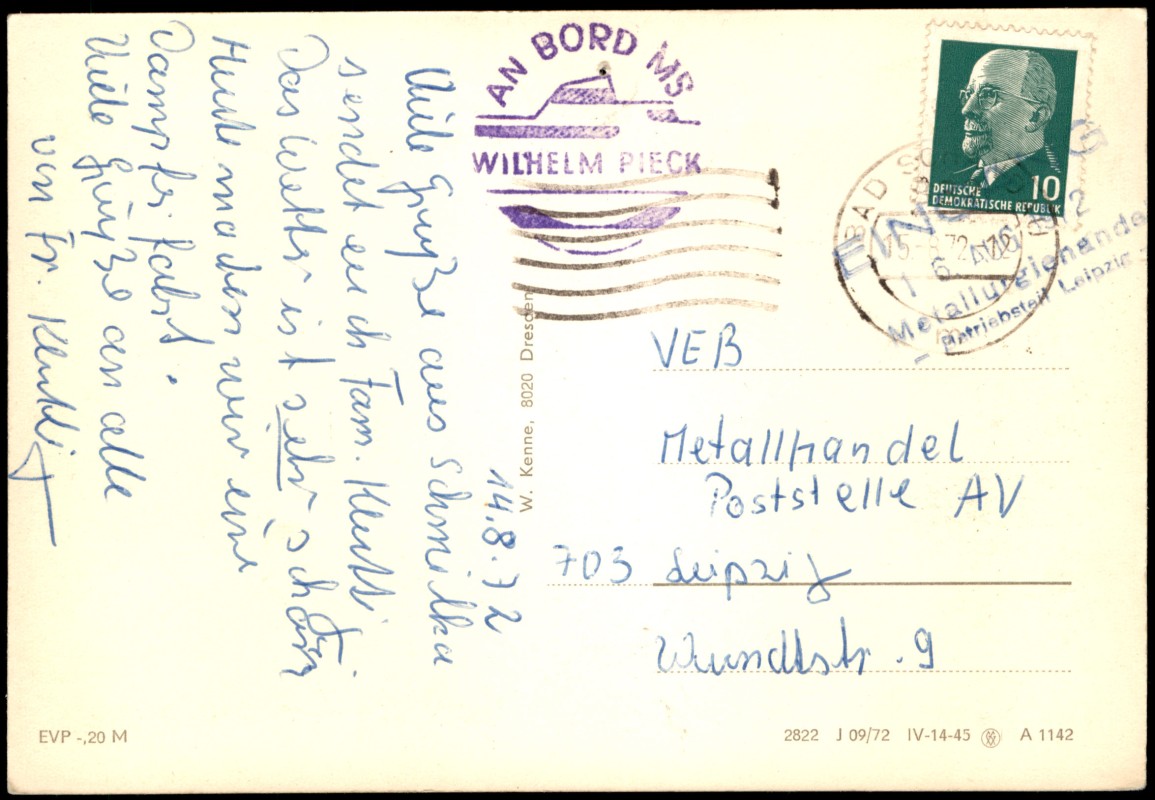 14.8.72
Viele Grüße aus Schmilka
sendet euch Fam.
Das Wetter ist sehr schön.
Heute machen wir eine
Dampferfahrt.
Viele Grüße an alle
von Fr.
AN BORD MS
WILHELM PIECK
W. Kenne, 8020 Dresden
DEUTSCHE
DEMOKRATISCHE REPUBLIK
10
BAD
15.-8.72
16. AUG. 1972
Metallurgiehandel
Betriebsteil Leipzig
VEB
Metallhandel
Poststelle AV
703 Leipzig
Wundtstr. 9
EVP -,20 M
2822 J 09/72 IV-14-45 A 1142